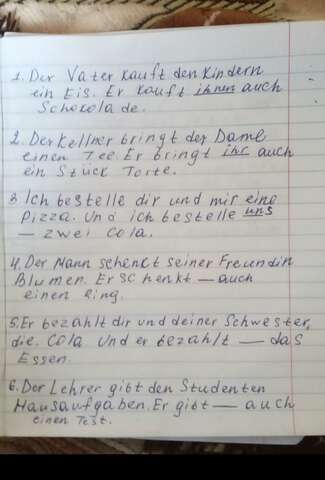 1. Der Vater kauft den Kindern
ein Eis. Er kauft ihnen auch
Schokolade.
2. Der Kellner bringt der Dame
einen Tee. Er bringt ihr auch
ein Stück Torte.
3 Ich bestelle dir und mir eine
Pizza. Und ich bestelle uns
— zwei Cola.
4. Der Mann schenkt seiner Freundin
Blumen. Er schenkt — auch
einen Ring.
5. Er bezahlt dir und deiner Schwester,
die Cola und er bezahlt — das
Essen.
6. Der Lehrer gibt den Studenten
Hausaufgaben. Er gibt — auch
einen Test.